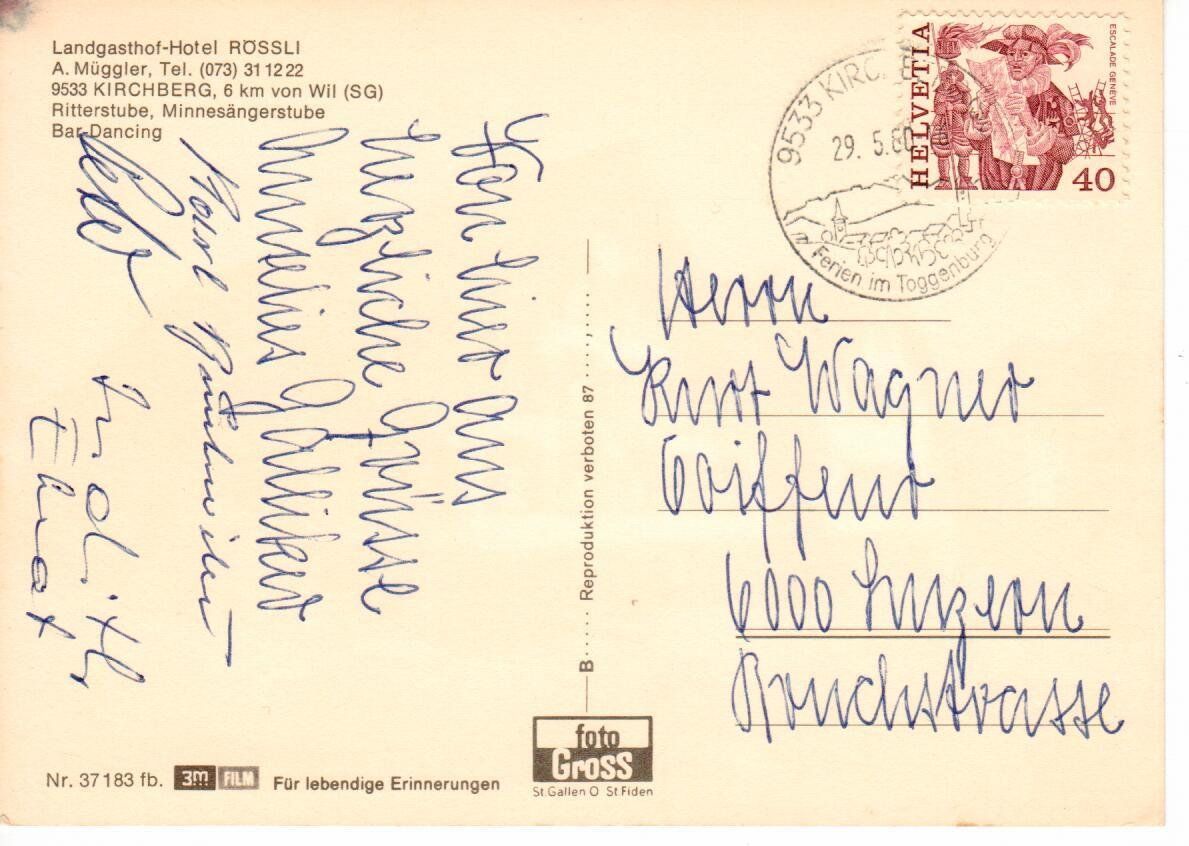 Landgasthof-Hotel RÖSSLI
A. Müggler, Tel. (073) 31 12 22
9533 KIRCHBERG, 6 km von Wil (SG)
Ritterstube, Minnesängerstube
Bar-Dancing
Von hier aus
herzliche Grüsse
Annelies Galliker
9533 KIRCHBERG
29. 5. 80
Ferien im Toggenburg
HELVETIA
ESCALADE GENÈVE
40
Herrn
Kurt Wagner
Coiffeur
6000 Luzern
Bruchstrasse
B..... Reproduktion verboten 87 .....,....
Nr. 37183 fb. 3M FILM Für lebendige Erinnerungen
foto
Gross
St.Gallen O St Fiden